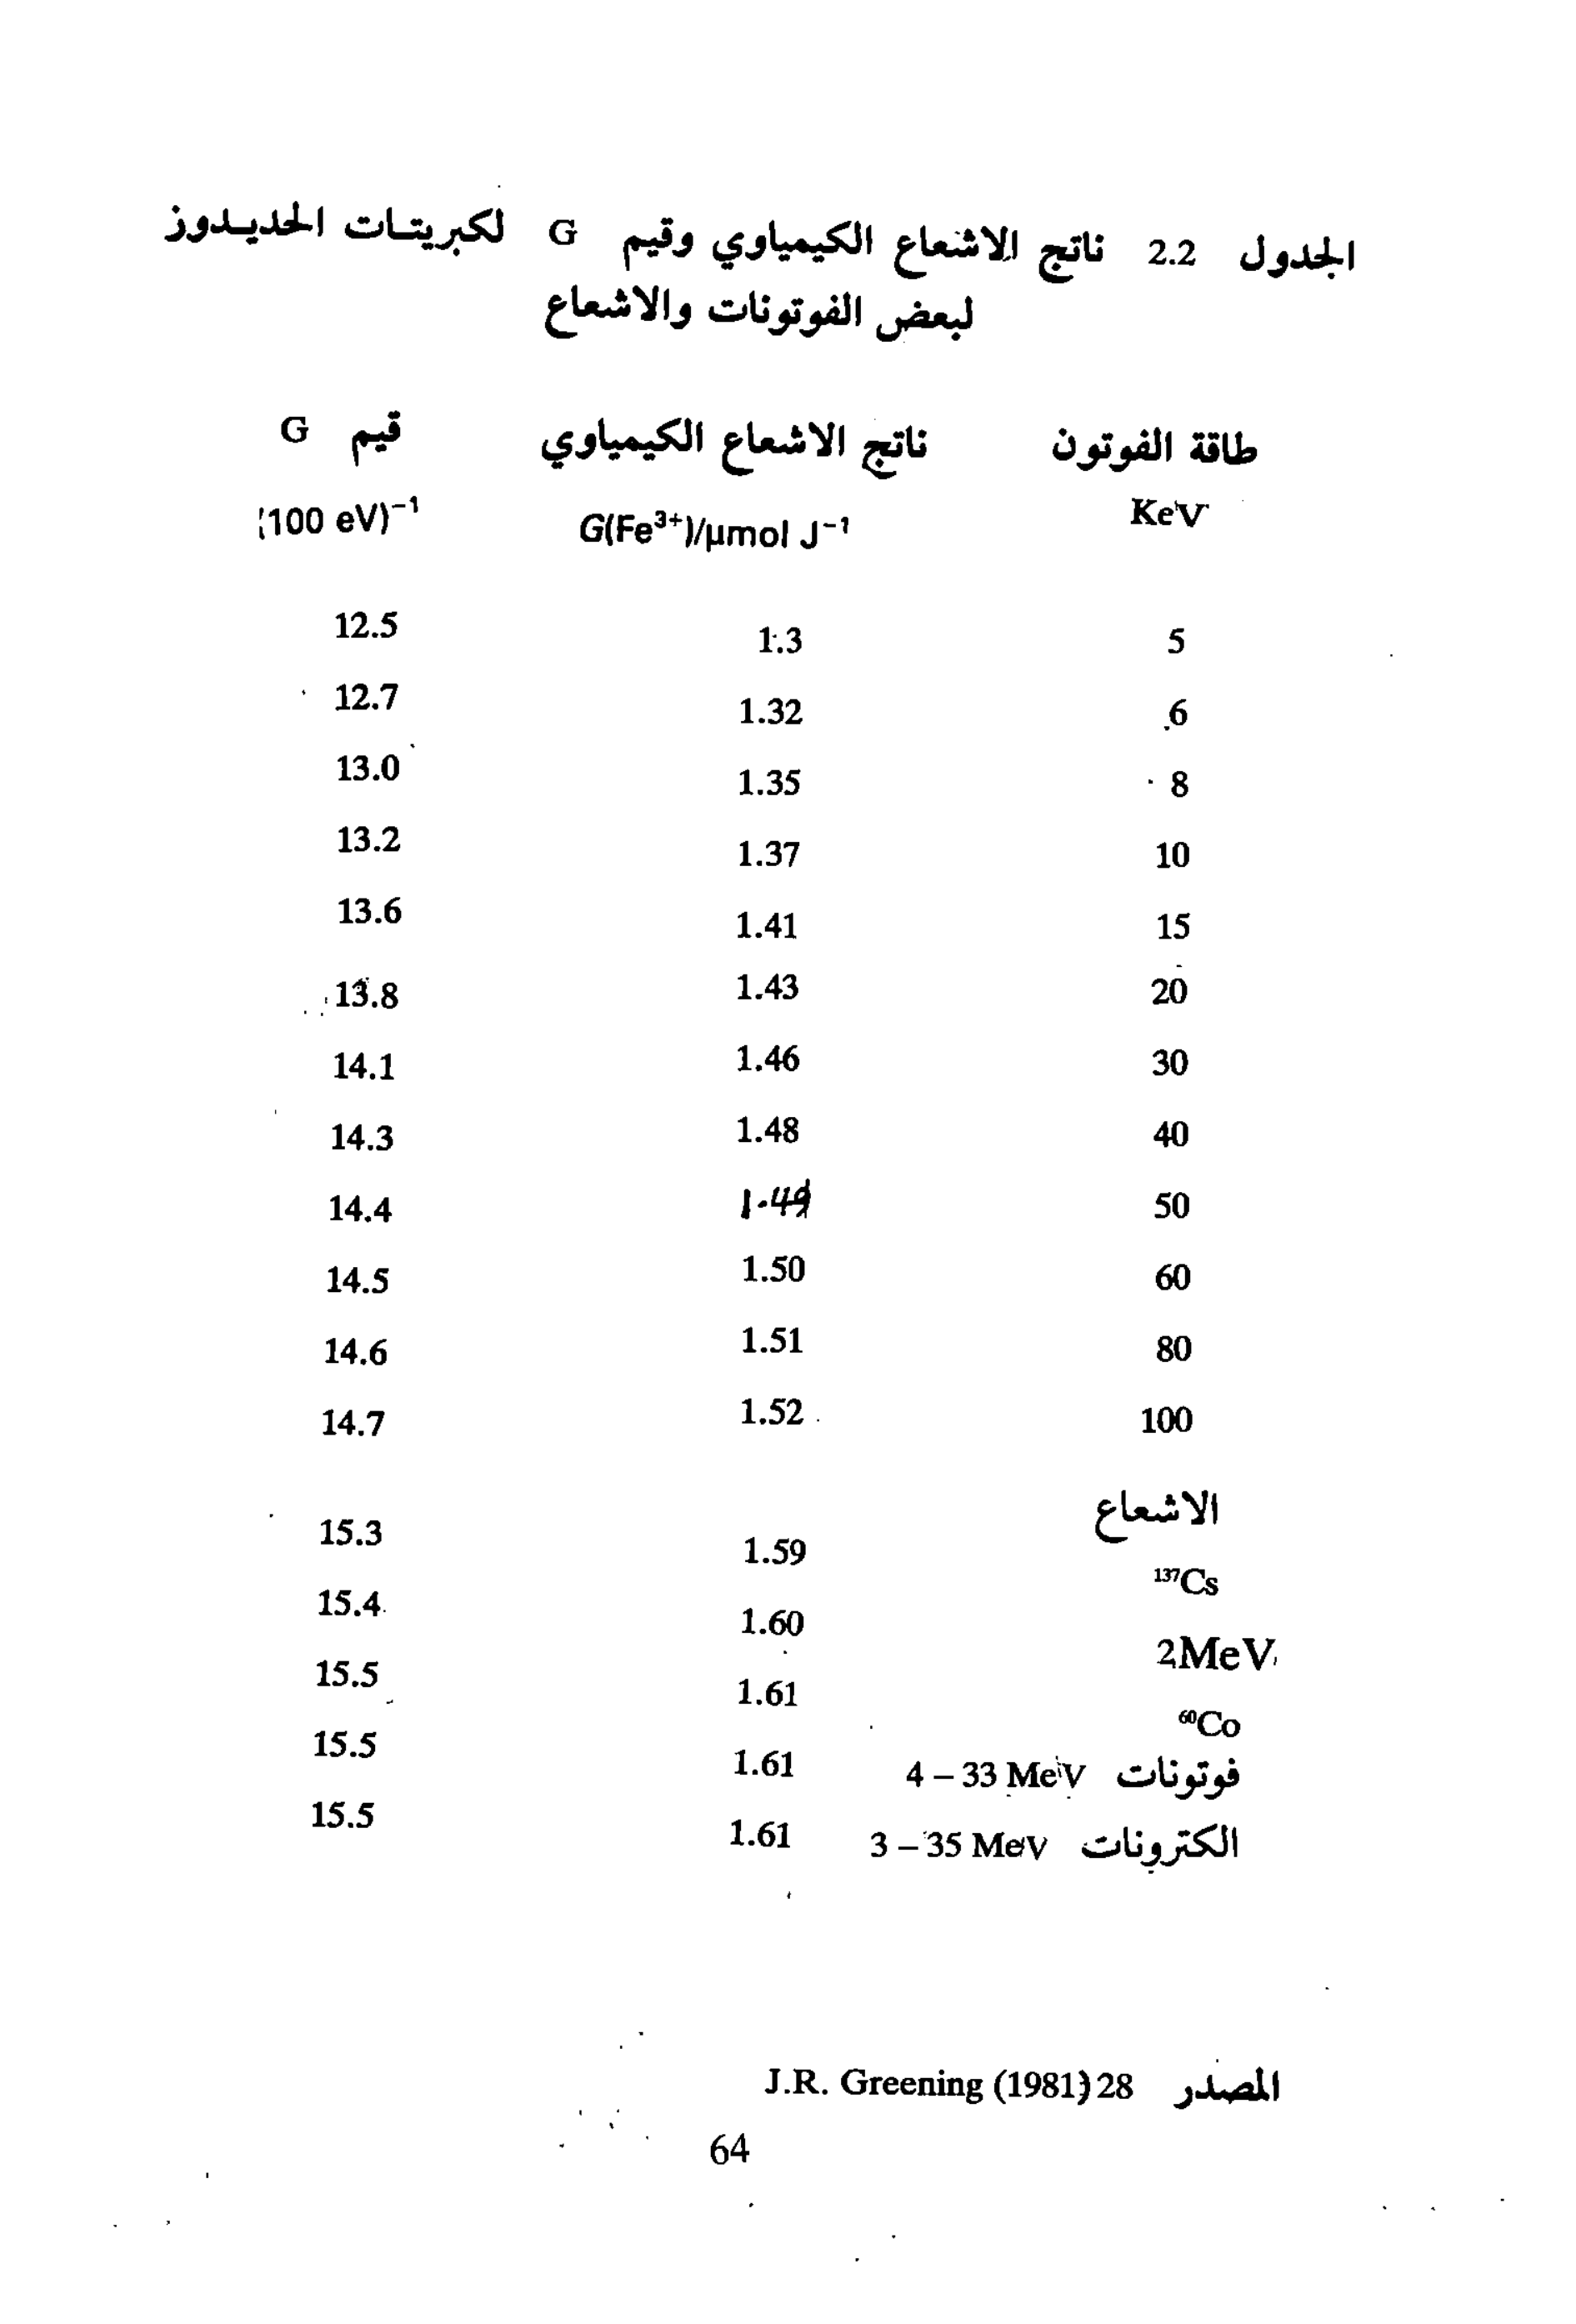 الجدول 2.2 ناتج الاشعاع الكيمياوي وقيم G لكبريتات الحديدوز
لبعض الفوتونات والاشعاع
طاقة الفوتون ناتج الاشعاع الكيمياوي قيم G
KeV G(Fe³⁺)/µmol J⁻¹ (100 eV)⁻¹
5 1.3 12.5
6 1.32 12.7
8 1.35 13.0
10 1.37 13.2
15 1.41 13.6
20 1.43 13.8
30 1.46 14.1
40 1.48 14.3
50 1.49 14.4
60 1.50 14.5
80 1.51 14.6
100 1.52 14.7
الاشعاع
¹³⁷Cs 1.59 15.3
2MeV 1.60 15.4
⁶⁰Co 1.61 15.5
فوتونات 4 – 33 MeV 1.61 15.5
الكترونات 3 – 35 MeV 1.61 15.5
المصدر J.R. Greening (1981) 28
64